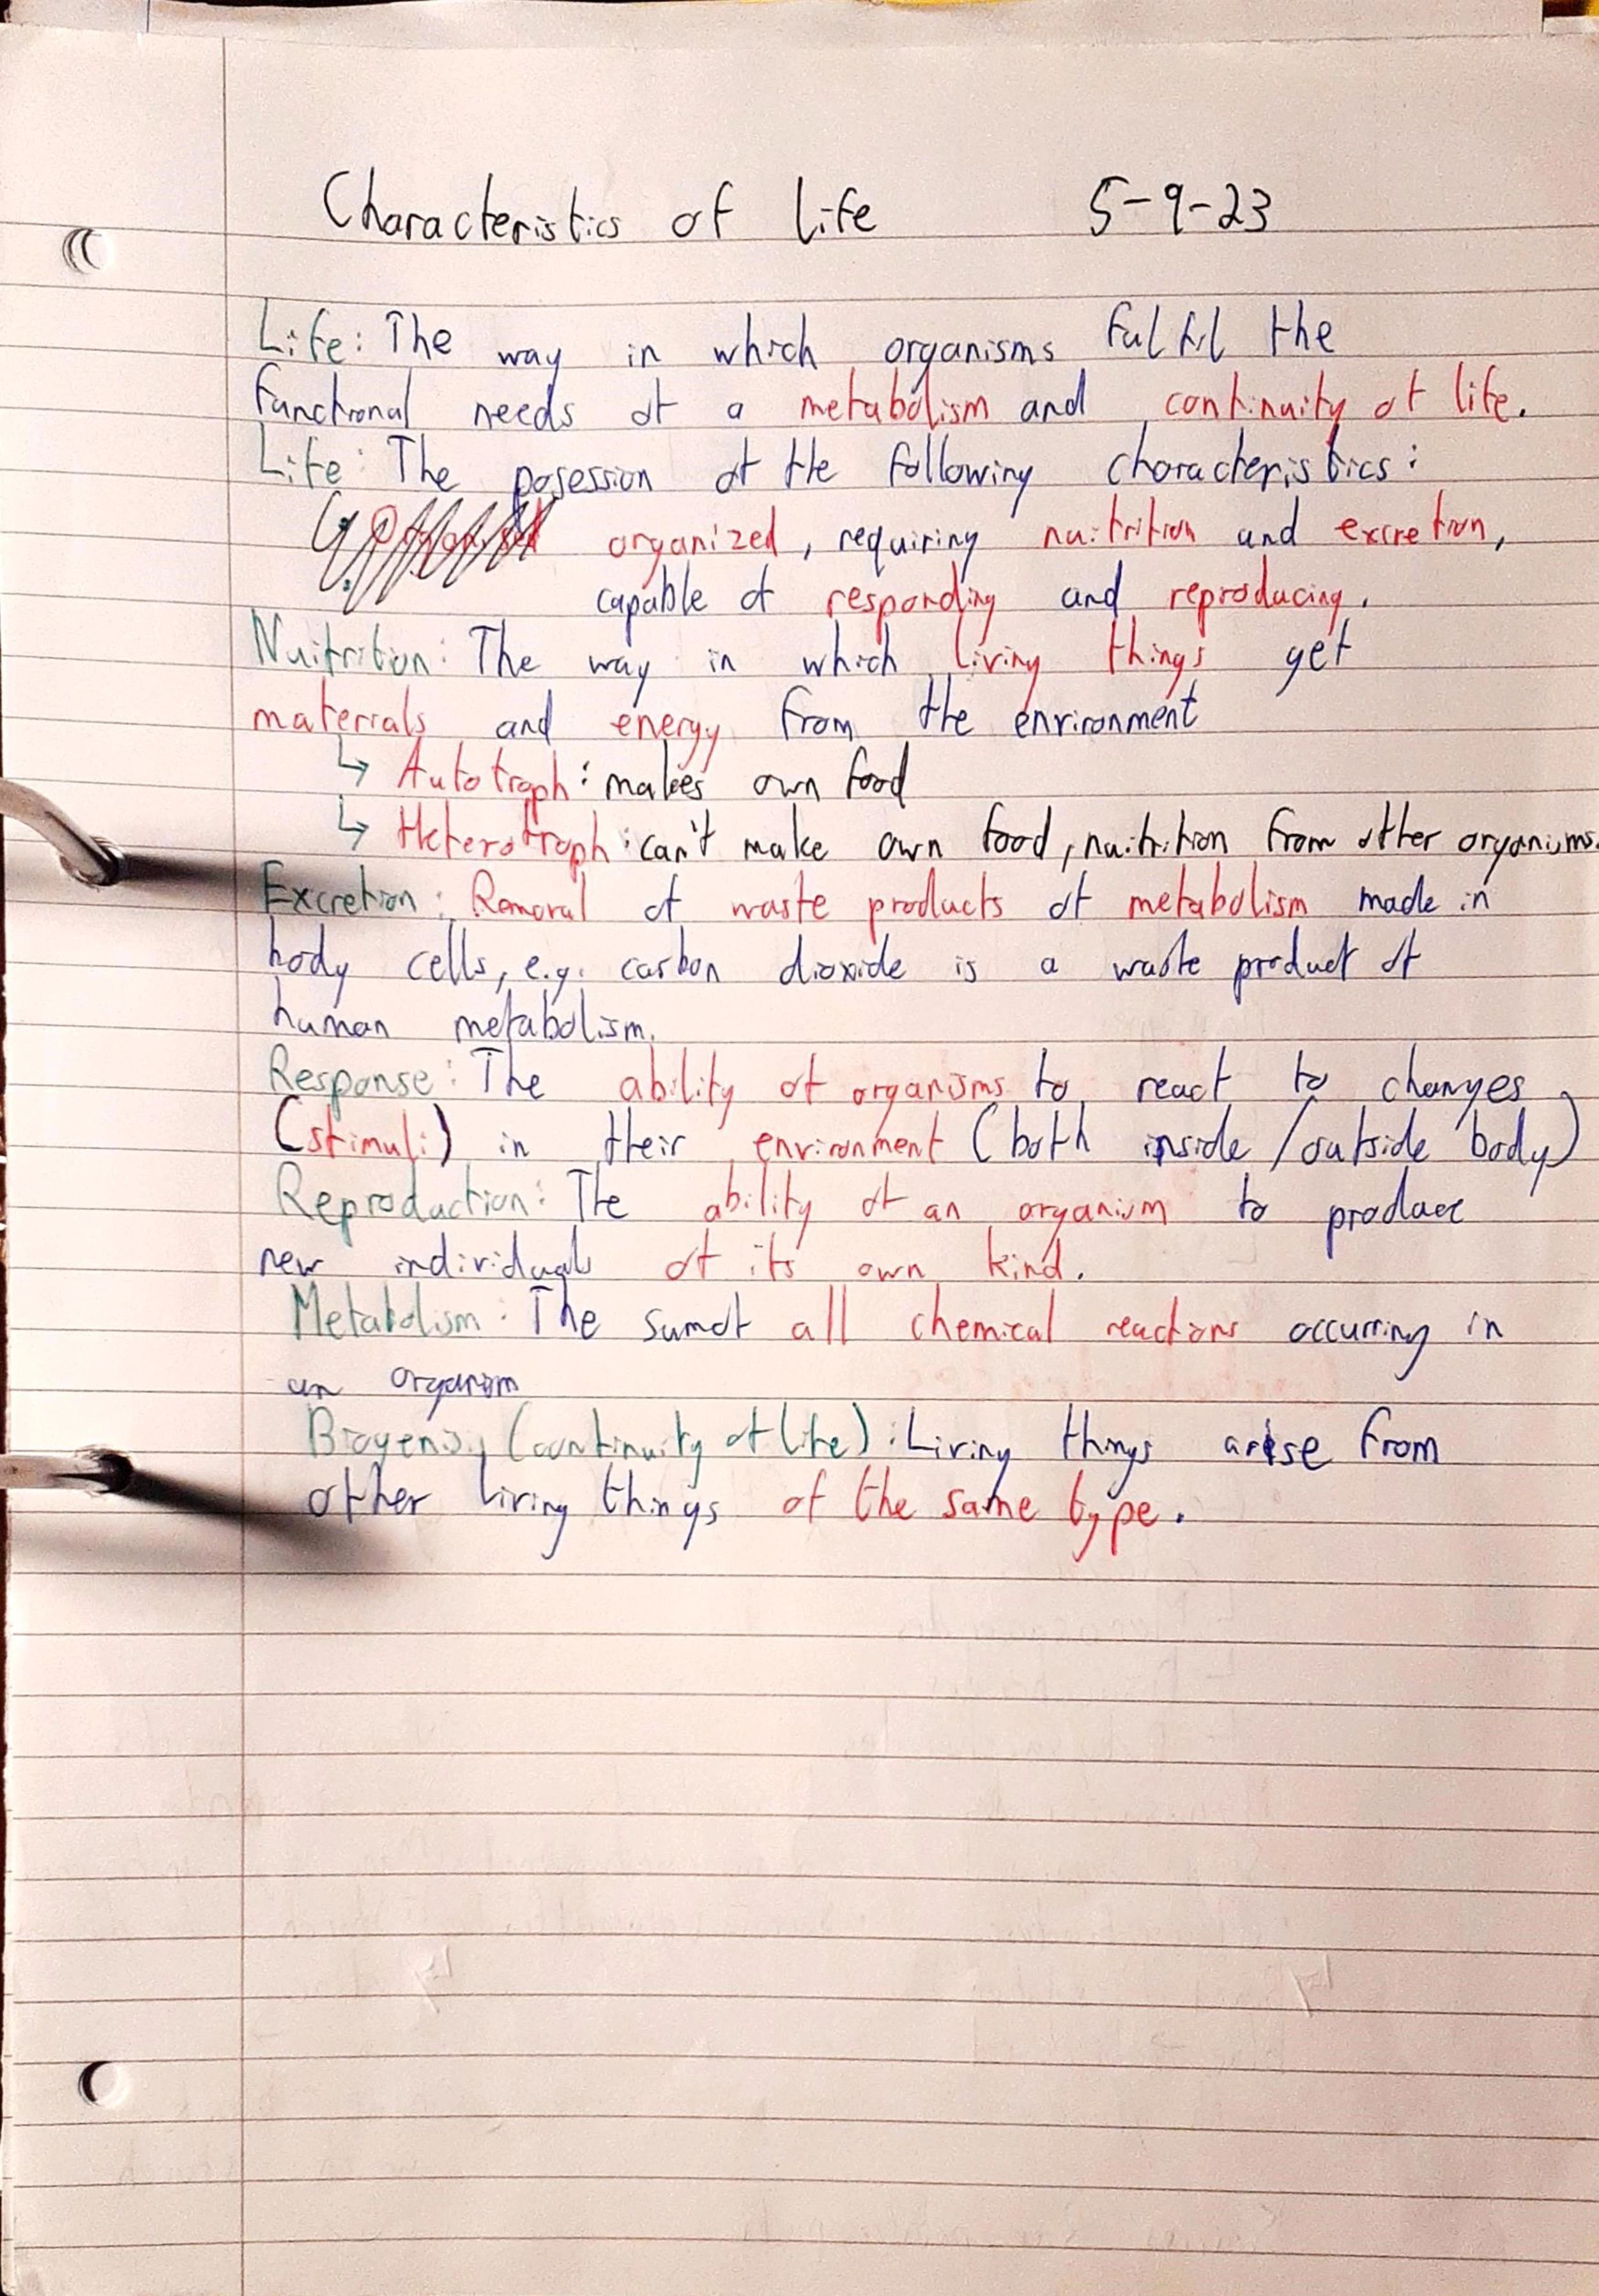 Characteristics of Life 5-9-23
Life: The way in which organisms fulfil the
functional needs of a metabolism and continuity of life.
Life: The posession of the following characteristics:
organized, requiring nuitrition and excretion,
capable of responding and reproducing.
Nuitrition: The way in which living things get
materials and energy from the environment
↳ Autotroph: makes own food
↳ Heterotroph: can't make own food, nuitrition from other organisms.
Excretion: Removal of waste products of metabolism made in
body cells, e.g. carbon dioxide is a waste product of
human metabolism.
Response: The ability of organisms to react to changes
(stimuli) in their environment (both inside/outside body)
Reproduction: The ability of an organism to produce
new individuals of its own kind.
Metabolism: The sum of all chemical reactions occurring in
an organism
(continuity of life): Living things arise from
other living things of the same type.